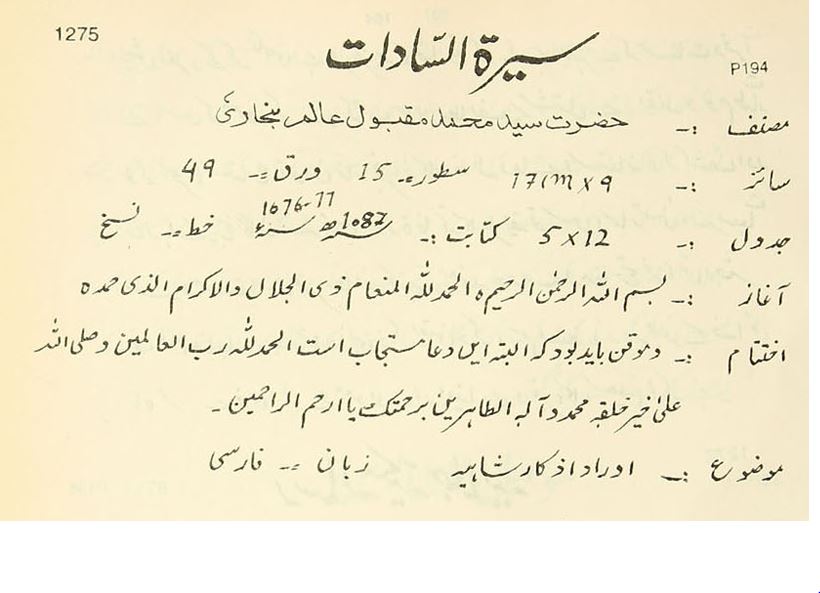 1275
سیرة السّادات
P194
مصنف :- حضرت سید محمد مقبول عالم بخاری
سائز :- 17cm x 9 سطور :- 15 ورق :- 49
جدول :- 5x12 کتابت :- 1087ھ 1676-77ء خط :- نسخ
آغاز :- بسم اللہ الرحمٰن الرحیم ہ الحمد للہ المنعام ذی الجلال والاکرام الذی حمدہ
اختتام :- و موقن باید بود کہ البتہ ایں دعا مستجاب است الحمد للہ رب العالمین و صلی اللہ
علیٰ خیر خلقہ محمد و آلہ الطاہرین برحمتک یا ارحم الراحمین ۔
موضوع :- اوراد اذکار شاہیہ زبان :- فارسی